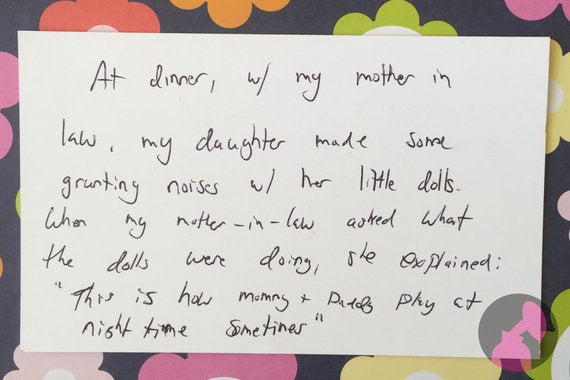 At dinner, w/ my mother in
law, my daughter made some
grunting noises w/ her little dolls.
When my mother-in-law asked what
the dolls were doing, she explained:
"This is how mommy + Daddy play at
night time sometimes"